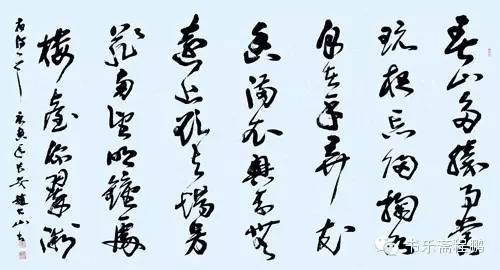 春山多勝事賞
玩夜忘歸掬水
月在手弄花
香滿衣興來無
遠近欲去惜芳
菲南望鳴鐘處
樓臺深翠微
书乐斋程鹏